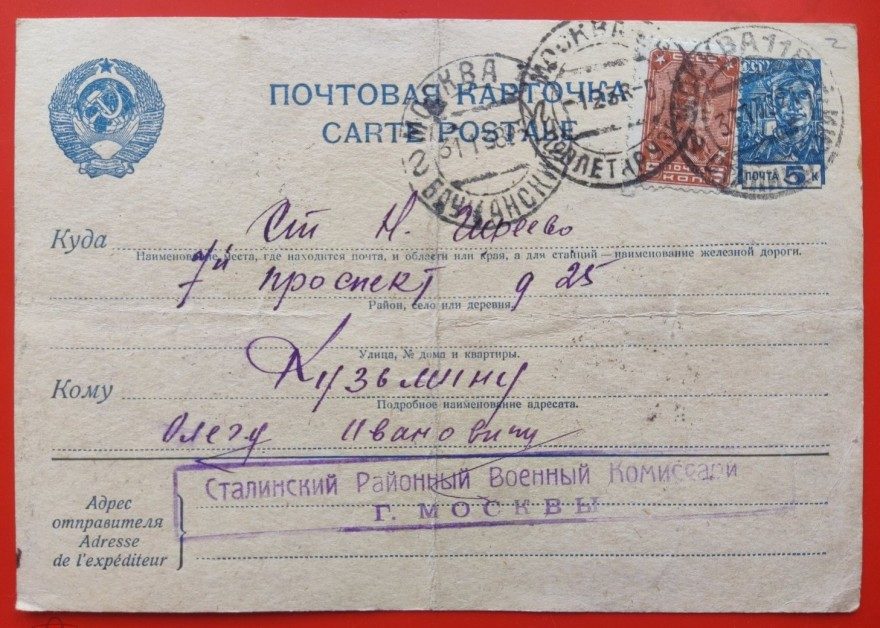 ПОЧТОВАЯ КАРТОЧКА
CARTE POSTALE
МОСКВА
МОСКВА
МОСКВА
31 1 38
БАУМАНСКИЙ
ПОЧТА 5 К
КОП
Куда Ст Н.
Наименование места, где находится почта, и области или края, а для станций—наименование железной дороги.
7й проспект д 25
Район, село или деревня.
Улица, № дома и квартиры.
Кому Кузьмину
Подробное наименование адресата.
Олегу Ивановичу
Сталинский Районный Военный Комиссари
Г. МОСКВЫ
Адрес
отправителя
Adresse
de l'expéditeur